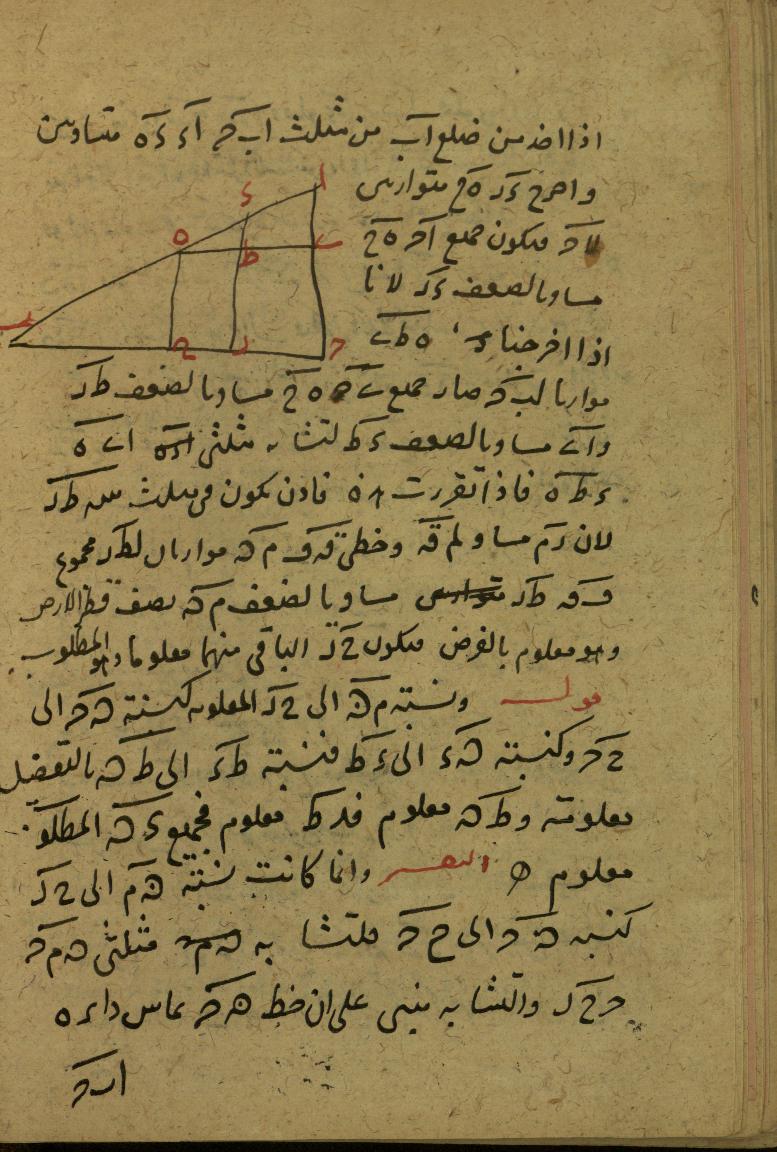 اذا اخذ من ضلع اب من مثلث ابح اء ءه متساويين
واخرج ءر هح متوازيين
لاح فيكون جميع اح هح
مساويا لضعف ءر لانا
اذا اخرجنا هطى
موازيا لبح صار جميع ىح هح مساويا لضعف طر
واى مساويا لضعف ءط لتشابه مثلثى اىه
ءطه فاذا تقررت هذه فاذن يكون فى مثلث طر
لان رم مساو لم وخطى م موازيان لطر مجموع
طر مساويا لضعف م نصف قطر الارض
وهو معلوم بالفرض فيكون حر الباقى منهما معلوما وهو المطلوب
قوله ونسبة مه الى حر المعلومة كنسبة هح الى
حح وكنسبة هء الى ءط فنسبة طء الى طه بالتفصيل
معلومة وطه معلوم فءط معلوم فجميع ءه المطلوب
معلوم التفسير وانما كانت نسبة هم الى حر
كنسبة هح الى حح لتشابه مثلثى همح
ححر والتشابه يبنى على ان خط هح يماس دائرة
ابح
ا
ء
ه
ط
ى
ب
ح
ر
ح